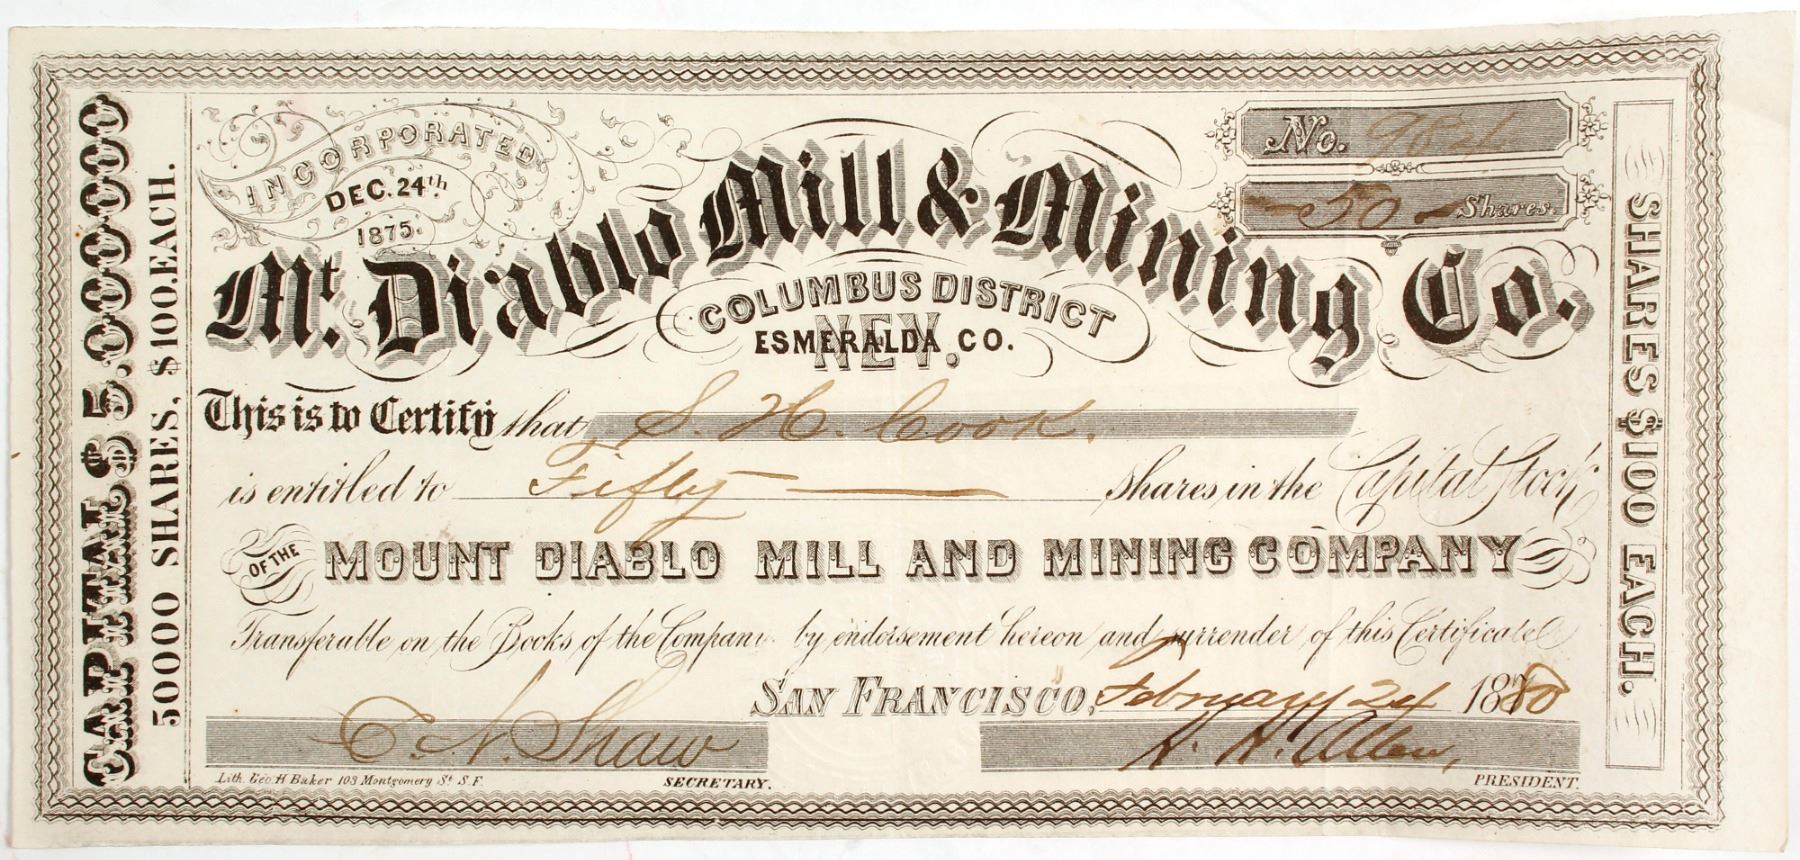 CAPITAL $5.000.000
50000 SHARES, $100.EACH.
INCORPORATED
DEC. 24th
1875.
No.
50 Shares.
Mt. Diablo Mill & Mining Co.
COLUMBUS DISTRICT
ESMERALDA CO.
NEV.
This is to Certify that S. H. Cook.
is entitled to Fifty shares in the Capital Stock
OF THE MOUNT DIABLO MILL AND MINING COMPANY
Transferable on the Books of the Company by endorsement hereon and surrender of this Certificate
SAN FRANCISCO, February 24 1880
C. N. Shaw
A. A. Allen,
Lith. Geo. H Baker 103 Montgomery St. S.F.
SECRETARY.
PRESIDENT.
SHARES $100 EACH.